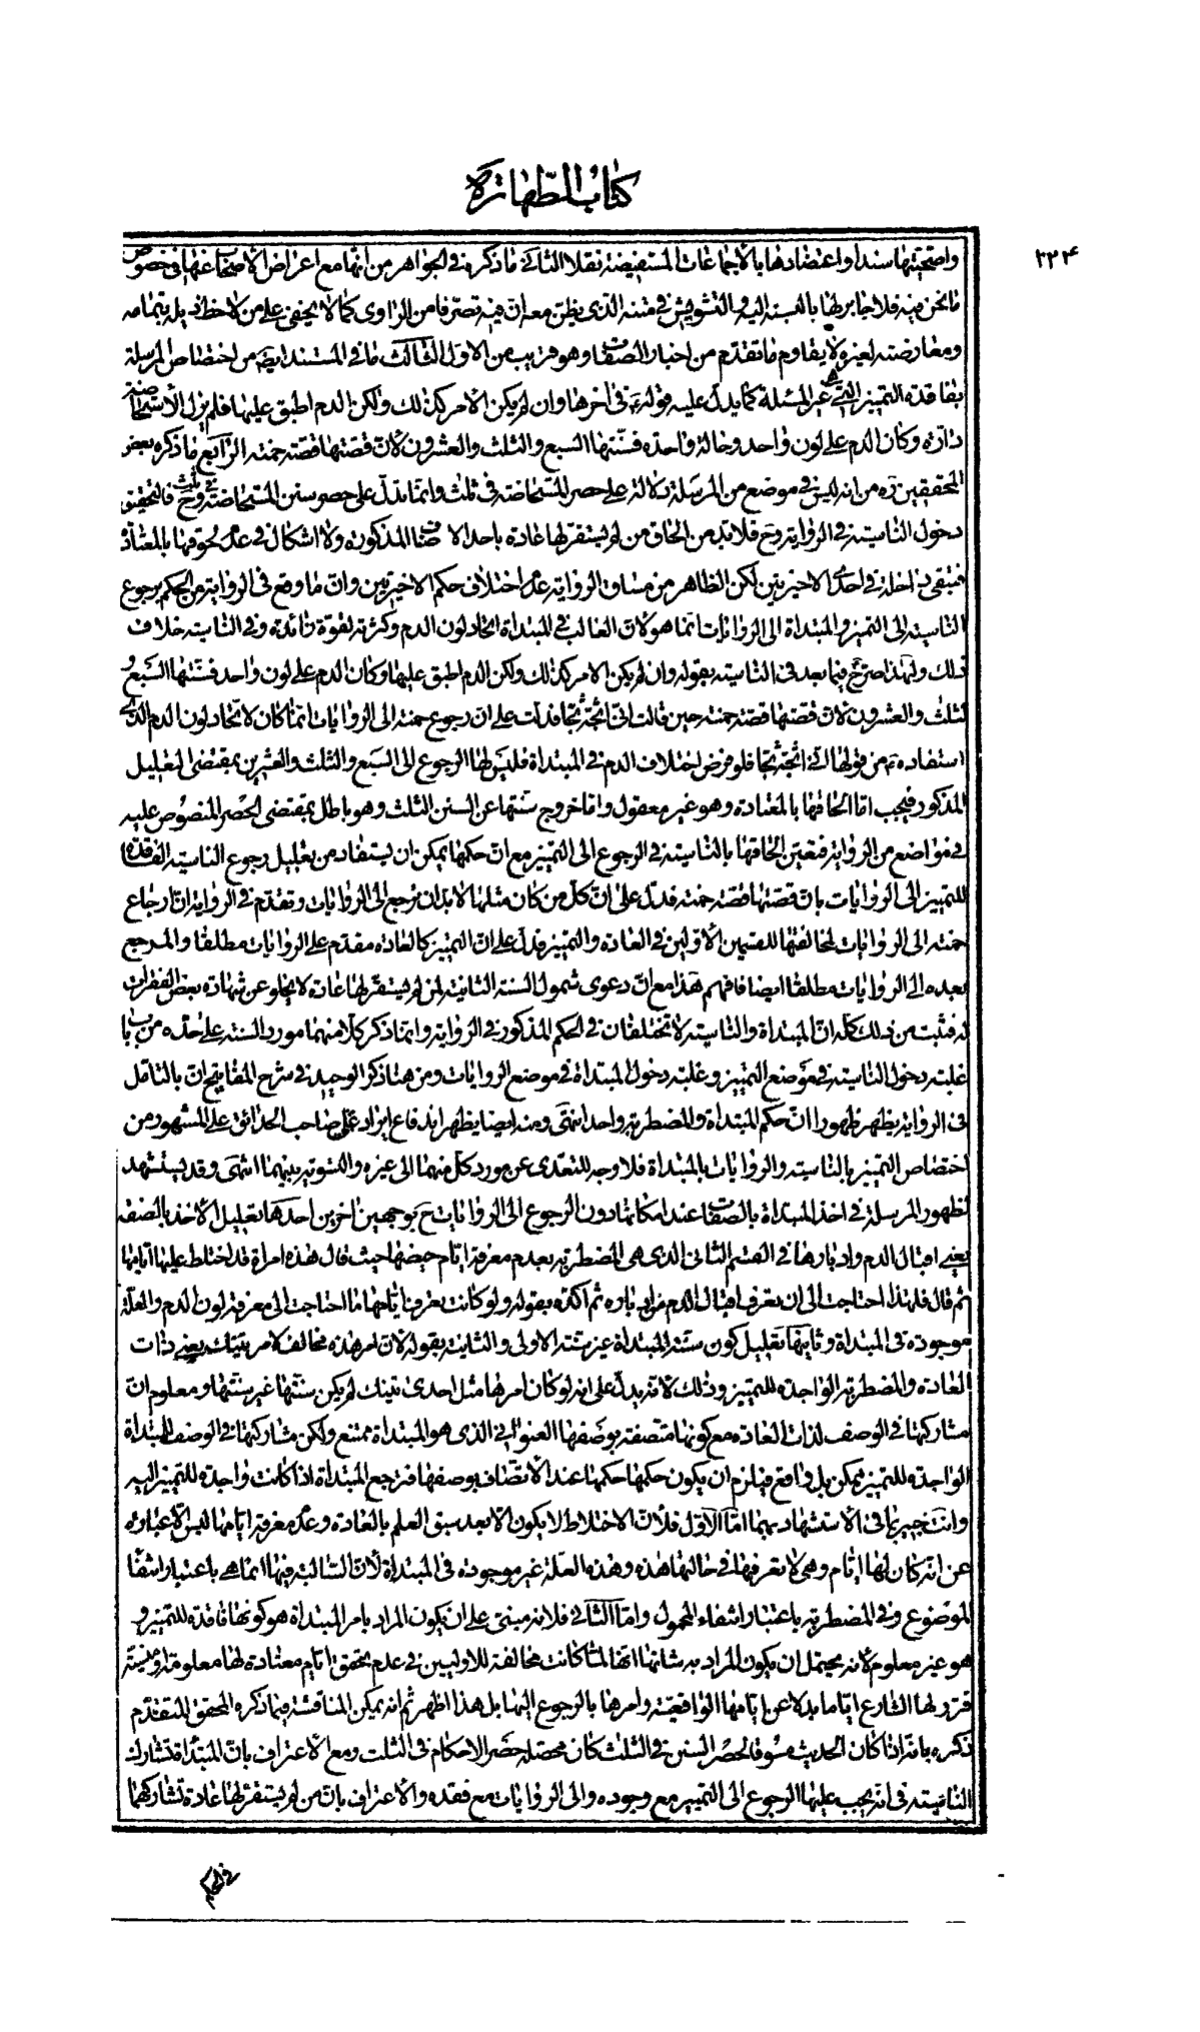 كتاب الطهارة
٢٣٤
واصحيتها سندا واعتضادها بالاجماعات المستفيضة نقلا الثاني ماذكره في الجواهر من انها مع اعراض الاصحاب عنها في خصوص
ما نحن فيه فلا جابر لها بالنسبة اليه والتشويش في متنه الذى يظن معه ان فيه تصرفا من الراوى كما لا يخفى على من لاحظ ذيله بتمامه
ومعارضته لغيره لا يقاوم ما تقدم من اخبار الصفات وهو قريب من الاول الثالث ما في المستند ايضا من اختصاص المرسلة
بفاقدة التميز التي هي غير المسئلة كما يدل عليه قوله ع في اخرها وان لم يكن الأمر كذلك ولكن الدم اطبق عليها فلم يزل الأستحاضة
دارة وكان الدم على لون واحد وحالة واحدة فسنتها السبع والثلث والعشرون لأن قصتها قصة حمنة الرابع ما ذكره بعض
المحققين ره من انه ليس في موضع من المرسلة دلالة على حصر المستحاضة في ثلث وانما تدل على حصر سنن المستحاضة في ثلث وح فالتحقيق
دخول الناسية في الرواية وح فلا بد من الحاق من لم يستقر لها عادة باحد الاصناف المذكورة ولا اشكال في عدم لحوقها بالمعتادة
فتبقى داخلة في احدى الاخيرتين لكن الظاهر من مساق الرواية عدم اختلاف حكم الاخيرتين وان ما وقع في الرواية من الحكم برجوع
الناسية الى التميز والمبتداة الى الروايات انما هو لان الغالب في المبتداة اتحاد لون الدم وكثرته لقوة زائدة وفي الناسية خلاف
ذلك ولهذا صرح فيما بعد في الناسية بقوله وان لم يكن الامر كذلك ولكن الدم اطبق عليها وكان الدم على لون واحد فسنتها السبع و
الثلث والعشرون لان قصتها قصة حمنة حين قالت انى اثجه ثجا فدلت على ان رجوع حمنة الى الروايات انما كان لاتحاد لون الدم الذى
استفاده ع من قولها انى اثجه ثجا فلو فرض اختلاف الدم في المبتداة فليس لها الرجوع الى السبع والثلث والعشرين بمقتضى التعليل
المذكور فيجب اما الحاقها بالمعتادة وهو غير معقول واما خروج سنتها عن السنن الثلث وهو باطل بمقتضى الحصر المنصوص عليه
في مواضع من الرواية فتعين الحاقها بالناسية في الرجوع الى التميز مع ان حكمها يمكن ان يستفاد من تعليل رجوع الناسية الفاقدة
للتميز الى الروايات بان قصتها قصة حمنة فدل على ان كل من كان مثلها لا بد ان ترجع الى الروايات وتقدم في الرواية ان ارجاع
حمنة الى الروايات لمخالفتها للقسمين الأولين في العادة والتميز فدل على ان التميز كالعادة مقدم على الروايات مطلقا والمرجع
بعده الى الروايات مطلقا ايضا فافهم هذا مع ان دعوى شمول السنة الثانية لمن لم يستقر لها عادة لا يخلو عن شهادة بعض الفقرات
له فثبت من ذلك كله ان المبتداة والناسية لا تختلفان في الحكم المذكور في الرواية وانما ذكر كلا منهما مورد السنة على حده من باب
غلبة دخول الناسية في موضع التميز وغلبة دخول المبتداة في موضع الروايات ومن هنا ذكر الوحيد في شرح المفاتيح ان بالتامل
في الرواية يظهر ظهورا ان حكم المبتداة والمضطربة واحد انتهى ومنه ايضا يظهر اندفاع ايراد صاحب الحدائق على المشهور من
اختصاص التميز بالناسية والروايات بالمبتداة فلا وجه للتعدى عن مورد كل منهما الى غيره والتسوية بينهما انتهى وقد يستشهد
لظهور المرسلة في اخذ المبتداة بالصفات عند امكانها دون الرجوع الى الروايات ح بوجهين اخرين احدهما تعليل الأخذ بالصفة
يعنى اقبال الدم وادبارها في القسم الثاني الذى هي المضطربة بعدم معرفة ايام حيضها حيث قال هذه امراة قد اختلط عليها ايامها
ثم قال فلهذا احتاجت الى ان تعرف اقبال الدم من ادباره ثم اكده بقوله ولو كانت تعرف ايامها ما احتاجت الى معرفة لون الدم والعلة
موجودة في المبتداة وثانيهما تعليل كون سنة المبتداة غير سنة الاولى والثانية بقوله لان امر هذه مخالف لامر تينك يعنى ذات
العادة والمضطربة الواجدة للتميز وذلك لانه يدل على انه لو كان امرها مثل احدى تينك لم يكن سنتها غير سنتها ومعلوم ان
مشاركتها في الوصف لذات العادة مع كونها متصفة بوصفها العنوانى الذى هو المبتداة ممتنع ولكن مشاركتها في الوصف للمبتداة
الواجدة للتميز يمكن بل واقع فيلزم ان يكون حكمها حكمها عند الاتصاف بوصفها فترجع المبتداة اذا كانت واجدة للتميز اليه
وانت خبير بما في الأستشهاد بهما اما الاول فلأن الاختلاط لا يكون الا بعد سبق العلم بالعادة وعدم معرفة ايامها ليس الا عبارة
عن انه كان لها ايام وهى لا تعرفها في حالتها هذه وهذه العلة غير موجودة في المبتداة لأن السالبة فيها انما هي باعتبار انتفاء
الموضوع وفي المضطربة باعتبار انتفاء المحمول واما الثاني فلانه مبنى على ان يكون المراد بامر المبتداة هو كونها فاقدة للتميز و
هو غير معلوم لأنه يحتمل ان يكون المراد به شانها انها لما كانت مخالفة للاوليين في عدم تحقق ايام معتادة لها معلومة او منسية
قرر لها الشارع اياما بدلا عن ايامها الواقعية وامرها بالرجوع اليها بل هذا اظهر ثم انه يمكن المناقشة فيما ذكره المحقق المتقدم
ذكره بانه اذا كان الحديث مسوقا لحصر السنن في الثلث كان محصله حصر الاحكام في الثلث ومع الأعتراف بان المبتداة تشارك
الناسية في انه يجب عليها الرجوع الى التميز مع وجوده والى الروايات مع فقده والأعتراف بان من لم يستقر لها عادة تشاركهما
في الحكم